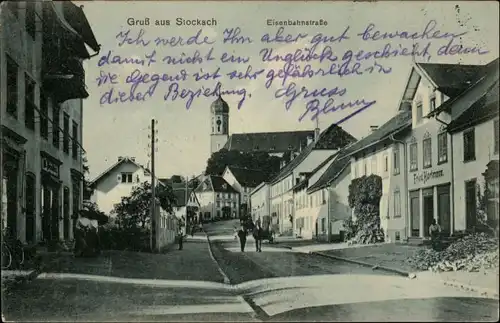 Gruß aus Stockach
Eisenbahnstraße
Ich werde Ihn aber gut bewachen
damit nicht ein Unglück geschieht denn
die Gegend ist sehr gefährlich in
dieser Beziehung. Gruss